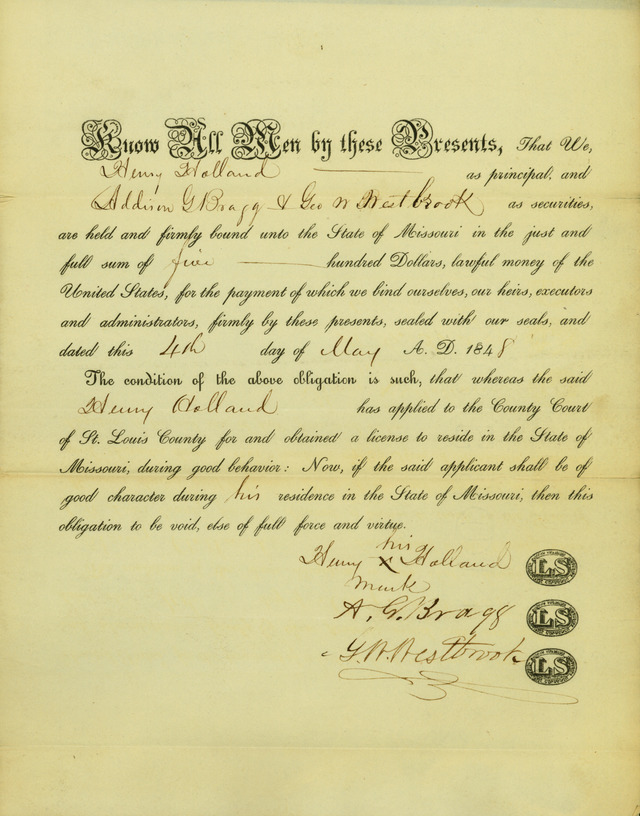 Know All Men by these Presents, That We,
Henry Holland as principal, and
Addison G Bragg & Geo W Westbrook as securities,
are held and firmly bound unto the State of Missouri in the just and
full sum of five hundred Dollars, lawful money of the
United States, for the payment of which we bind ourselves, our heirs, executors
and administrators, firmly by these presents, sealed with our seals, and
dated this 4th day of May A. D. 1848
The condition of the above obligation is such, that whereas the said
Henry Holland has applied to the County Court
of St. Louis County for and obtained a license to reside in the State of
Missouri, during good behavior: Now, if the said applicant shall be of
good character during his residence in the State of Missouri, then this
obligation to be void, else of full force and virtue.
his
Henry X Holland LS
mark
A. G. Bragg LS
G. W. Westbrook LS